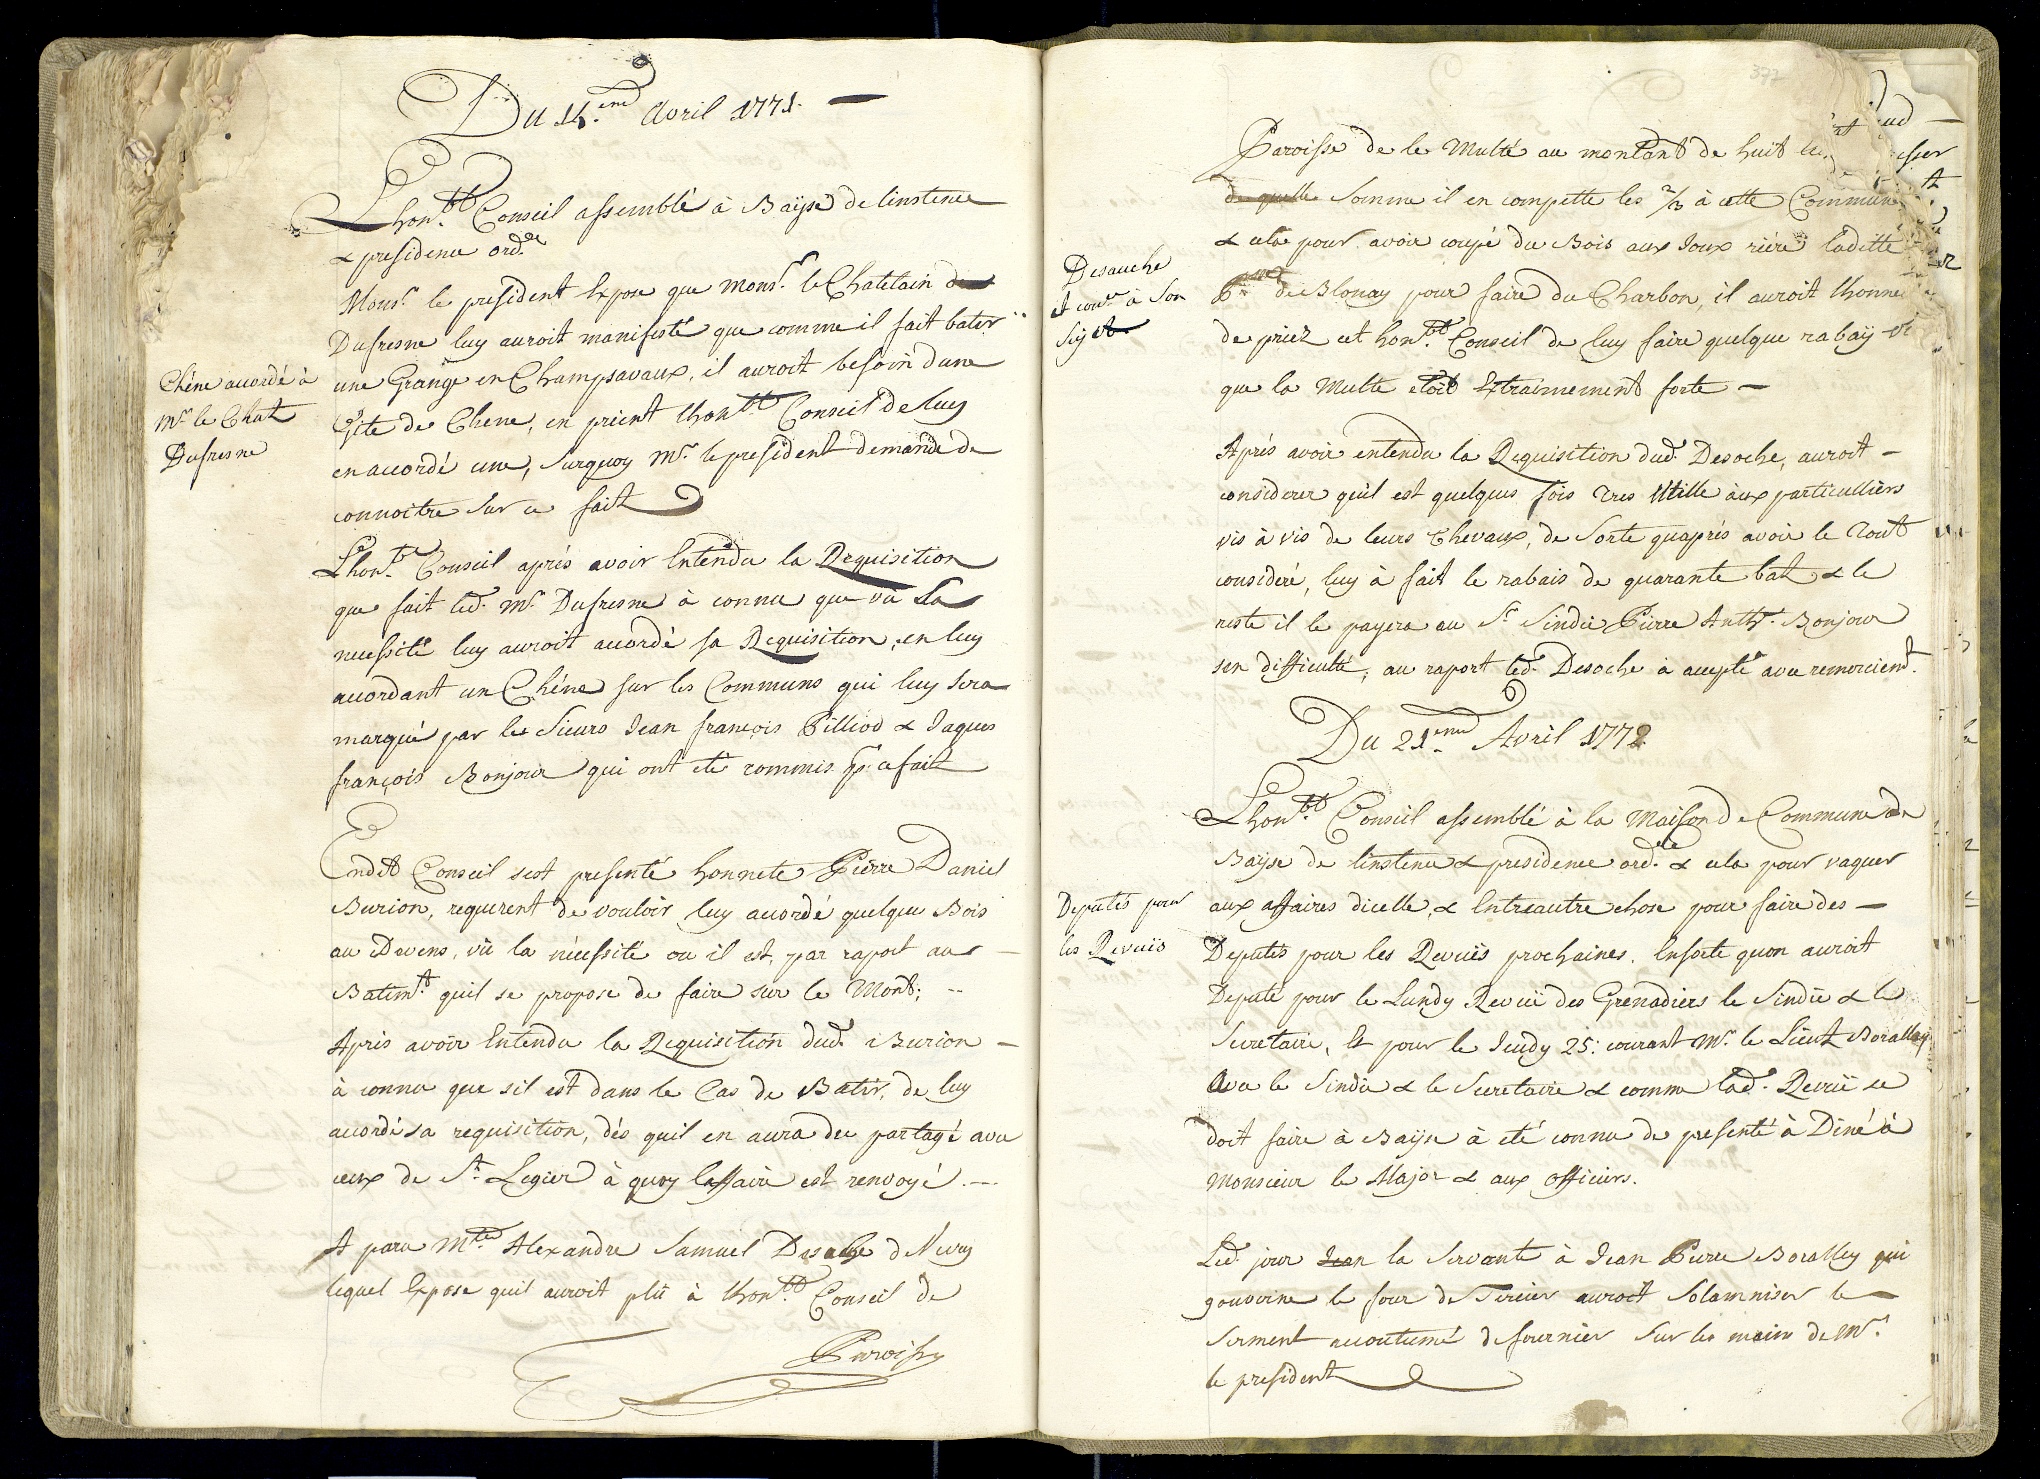 Du 14.eme Avril 1771.
Lhon.ble Conseil assemblé à Baÿse de linstence
& presidence ord.re
Mons.r le president Expose que Mons.r le Chatelain de
Dufresne luy auroit manifesté que comme il fait batir
une Grange en Champsavaux, il auroit besoin dune
Gite de Chene, en prient lhon.ble Conseil de luy
en accordé une, Surquoy M.r le president demande de
connoitre sur ce fait
Chêne accordé à
M.r le Chat.
Dufresne
Lhon.ble Conseil aprés avoir Entendu la Requisition
que fait led. M.r Dufresne à connu que vû La
necessité luy auroit accordé sa Requisition, en luy
accordant un Chêne sur les Communs qui luy sera
marqué par les Sieurs Jean françois Pilliod & Jaques
françois Bonjour qui ont eté commis p.r ce fait
Endit Conseil sest presenté honnete Pierre Daniel
Burion, requerent de vouloir luy accordé quelque Bois
au Devens, vû la nécessité ou il est, par raport au
Batim.t quil se propose de faire sur le Mont;
Aprés avoir Entendu la Requisition dud. Burion
à connu que sil est dans le Cas de Batir, de luy
accordé sa requisition, dés quil en aura deu partagé avec
ceux de S.t Legier à quoy laffaire est renvoyé.
A paru M.tre Alexandre Samuel Desoche d Vivey
lequel Expose quil auroit plû à lhon.ble Conseil de
Paroisse
377
Paroisse de le Multé au montant de huit
de quelle Somme il en compette les 2/3 à cette Commune
& cela pour avoir coupé du Bois aux Joux riére laditte
de Blonay pour faire du Charbon, il auroit lhonne
de priez cet hon.ble Conseil de luy faire quelque rabaÿ
que la Multe etoit Extraimement forte
Desauche
et à Son
Aprés avoir entendu la Requisition dud. Desoche, auroit
considerer quil est quelques fois tres Utille aux particulliers
vis à vis de leurs Chevaux, de Sorte quaprés avoir le tout
consideré, luy à fait le rabais de quarante bat & le
reste il le payera au S.r Sindic Pierre Anth. Bonjour
sen difficulté, au raport led. Desoche à accepté avec remerciem.t
Du 21.eme Avril 1772
Lhon.ble Conseil assemblé à la Maison de Commune de
Baÿse de linstence & presidence ord.re & cela pour vaquer
aux affaires dicelle, & Entreautre chose pour faire des
Deputés pour les Revuës prochaines, Ensorte quon auroit
Deputé pour le Lundy Revuë des Grenadiers le Sindic & le
Secretaire, Et pour le Jeudy 25: courant M.r le Lieut Boralley
Avec le Sindic & le Secretaire & comme lad. Revuë se
doit faire à Baÿse à eté connu de presenté à Diné à
Monsieur le Major & aux officiers.
Deputés pour
les Revuës
Led. jour Jean la Servante à Jean Pierre Boralley qui
gouverne le four de Tercier auroit Solamniser le
Serment accoutumé de fournier Sur les mains de M.r
le president